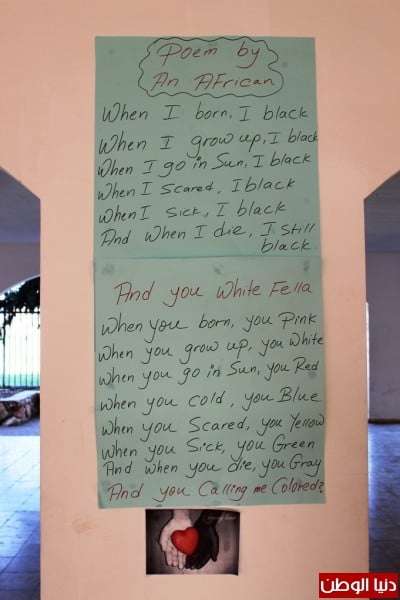 Poem by
An African
When I born, I black
When I grow up, I black
When I go in Sun, I black
When I scared, I black
When I sick, I black
And when I die, I still
black
And you White Fella
When you born, you Pink
When you grow up, you White
When you go in Sun, you Red
When you cold, you Blue
When you Scared, you Yellow
When you Sick, you Green
And when you die, you Gray
And you Calling me Colored?
دنيا الوطن